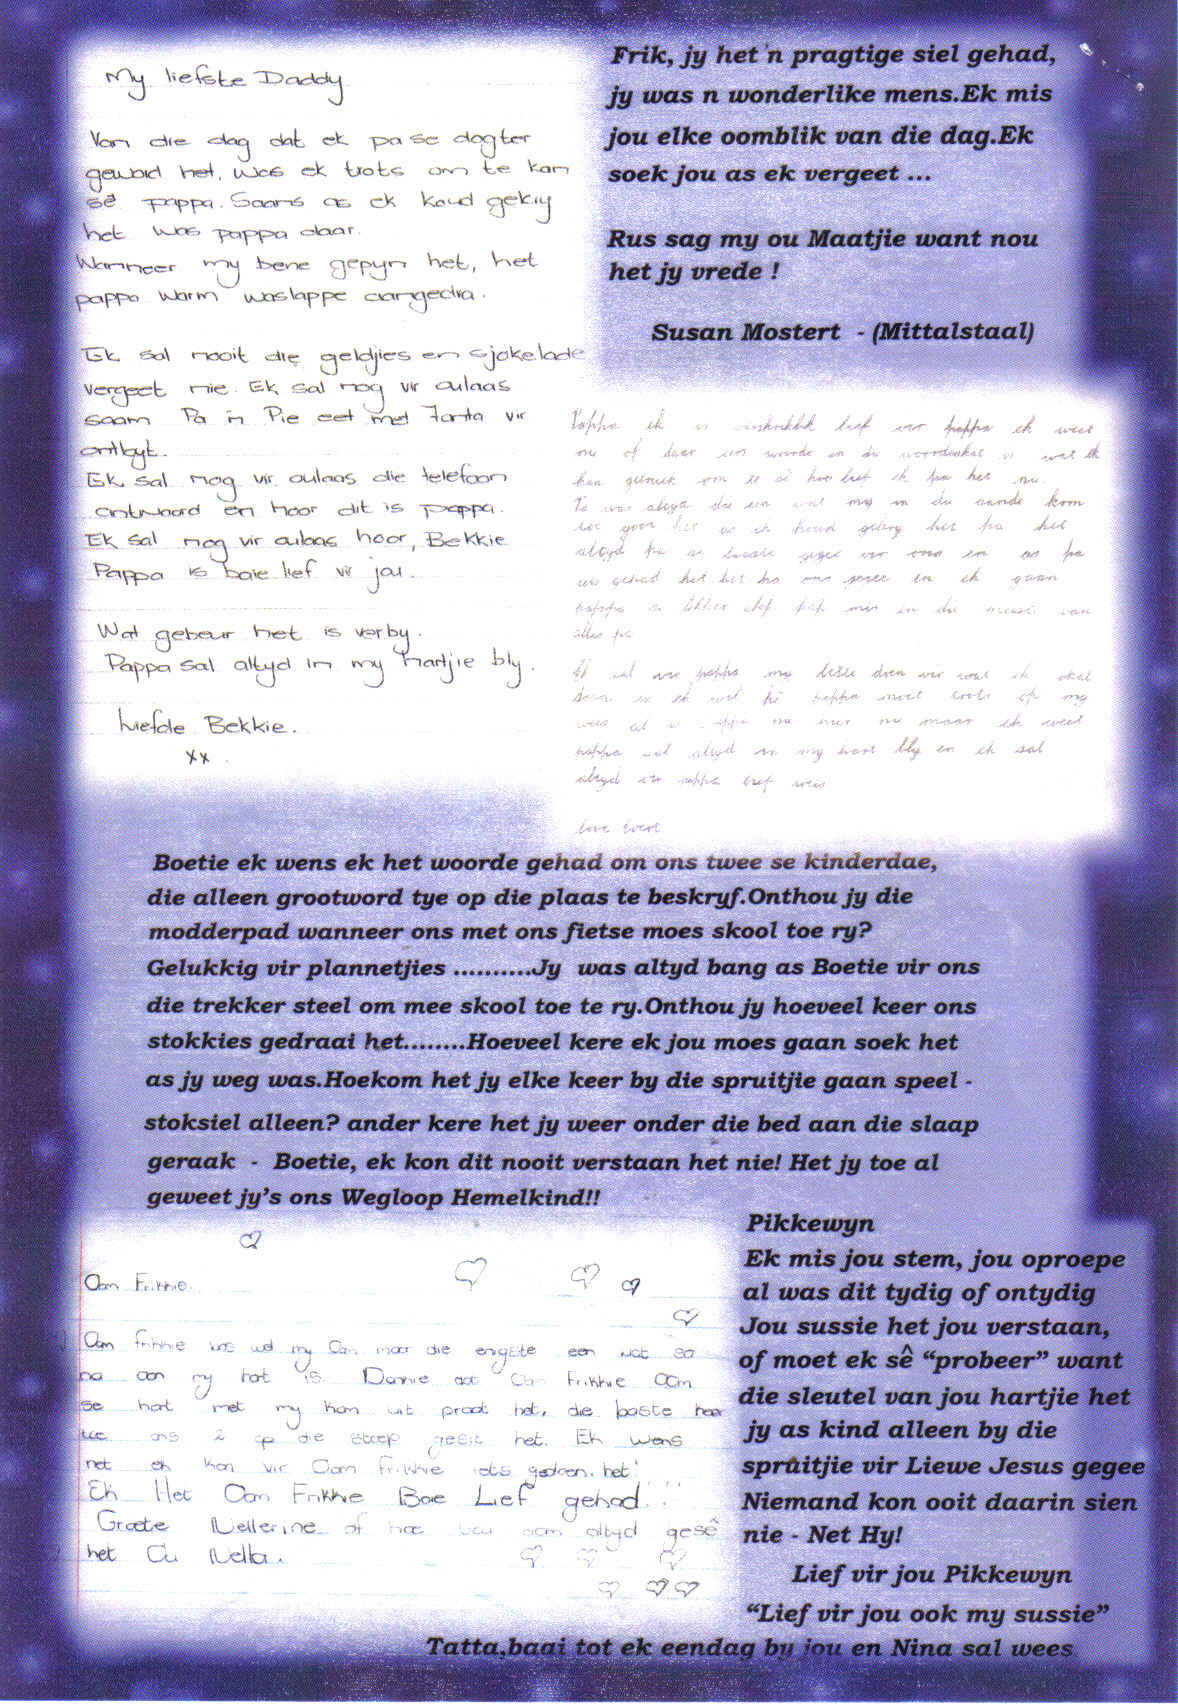 My liefste Daddy
Van die dag dat ek pa se dogter
geword het, was ek trots om te kan
sê pappa. Saans as ek koud gekry
het was pappa daar.
Wanneer my bene gepyn het, het
pappa warm waslappe aangedra.
Ek sal nooit die geldjies en sjokelade
vergeet nie. Ek sal nog vir oulaas
saam Pa 'n Pie eet met Fanta vir
ontbyt.
Ek sal nog vir oulaas die telefoon
antwoord en hoor dit is pappa.
Ek sal nog vir oulaas hoor, Bekkie
Pappa is baie lief vir jou.
Wat gebeur het is verby.
Pappa sal altyd in my hartjie bly.
Liefde Bekkie.
xx.
Frik, jy het 'n pragtige siel gehad,
jy was n wonderlike mens.Ek mis
jou elke oomblik van die dag.Ek
soek jou as ek vergeet ...
Rus sag my ou Maatjie want nou
het jy vrede !
Susan Mostert - (Mittalstaal)
Pappa ek is lief vir pappa ek weet
nie of daar een woorde in die woordeboek is wat ek
kan gebruik om te sê hoe lief ek pa het nie.
Pa was altyd die een wat my in die aande kom
toe gooi het as ek koud gekry het pa het
altyd pa se laaste gegee vir ons en as pa
gehad het het pa ons gegee en ek gaan
pappa se lekker
alles pa
Ek sal vir pappa my beste doen vir wat ek
doen is ek wil hê pappa moet trots op my
wees al is pappa nie hier nie maar ek weet
pappa sal altyd in my hart bly en ek sal
altyd vir pappa lief wees
love Evert
Boetie ek wens ek het woorde gehad om ons twee se kinderdae,
die alleen grootword tye op die plaas te beskryf.Onthou jy die
modderpad wanneer ons met ons fietse moes skool toe ry?
Gelukkig vir plannetjies ..........Jy was altyd bang as Boetie vir ons
die trekker steel om mee skool toe te ry.Onthou jy hoeveel keer ons
stokkies gedraai het........Hoeveel kere ek jou moes gaan soek het
as jy weg was.Hoekom het jy elke keer by die spruitjie gaan speel -
stoksiel alleen? ander kere het jy weer onder die bed aan die slaap
geraak - Boetie, ek kon dit nooit verstaan het nie! Het jy toe al
geweet jy's ons Wegloop Hemelkind!!
Oom Frikkie.
Oom frikkie was wel my Oom maar die engste een wat so
na aan my hart is. Dankie dat Oom Frikkie Oom
se hart met my kom uit praat het, die laaste keer
toe ons 2 op die stoep gesit het. Ek wens
net ek kon vir Oom Frikkie iets gedoen het!
Ek Het Oom Frikkie Baie Lief gehad!
Groete Nellerine of hoe sou oom altyd gesê
het Ou Nella.
Pikkewyn
Ek mis jou stem, jou oproepe
al was dit tydig of ontydig
Jou sussie het jou verstaan,
of moet ek sê “probeer” want
die sleutel van jou hartjie het
jy as kind alleen by die
spruitjie vir Liewe Jesus gegee
Niemand kon ooit daarin sien
nie - Net Hy!
Lief vir jou Pikkewyn
“Lief vir jou ook my sussie”
Tatta,baai tot ek eendag by jou en Nina sal wees